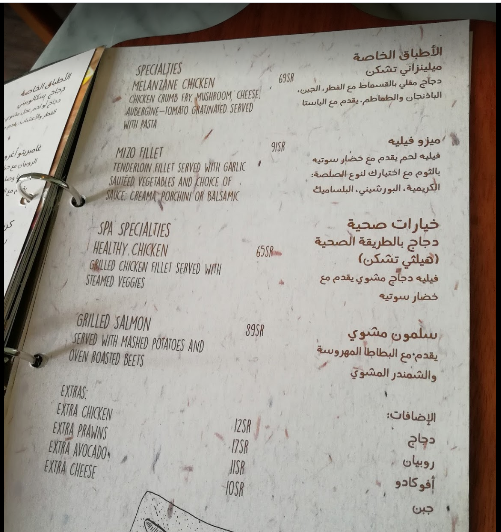 SPECIALTIES
MELANZANE CHICKEN 69SR
CHICKEN CRUMB FRY, MUSHROOM, CHEESE,
AUBERGINE-TOMATO GRATINATED SERVED
WITH PASTA
MIZO FILLET 91SR
TENDERLOIN FILLET SERVED WITH GARLIC
SAUTEED VEGETABLES AND CHOICE OF
SAUCE: CREAMA, PORCHINI OR BALSAMIC
SPA SPECIALTIES
HEALTHY CHICKEN 65SR
GRILLED CHICKEN FILLET SERVED WITH
STEAMED VEGGIES
GRILLED SALMON 89SR
SERVED WITH MASHED POTATOES AND
OVEN ROASTED BEETS
EXTRAS:
EXTRA CHICKEN 12SR
EXTRA PRAWNS 17SR
EXTRA AVOCADO 11SR
EXTRA CHEESE 10SR
الأطباق الخاصة
ميلينزاني تشكن
دجاج مقلي بالقسماط مع الفطر، الجبن،
الباذنجان والطماطم، يقدم مع الباستا
ميزو فيليه
فيليه لحم يقدم مع خضار سوتيه
بالثوم مع اختيارك لنوع الصلصة:
الكريمية، البورشيني، البلساميك
خيارات صحية
دجاج بالطريقة الصحية
(هيلثي تشكن)
فيليه دجاج مشوي يقدم مع
خضار سوتيه
سلمون مشوي
يقدم مع البطاطا المهروسة
والشمندر المشوي
الإضافات:
دجاج
روبيان
أفوكادو
جبن